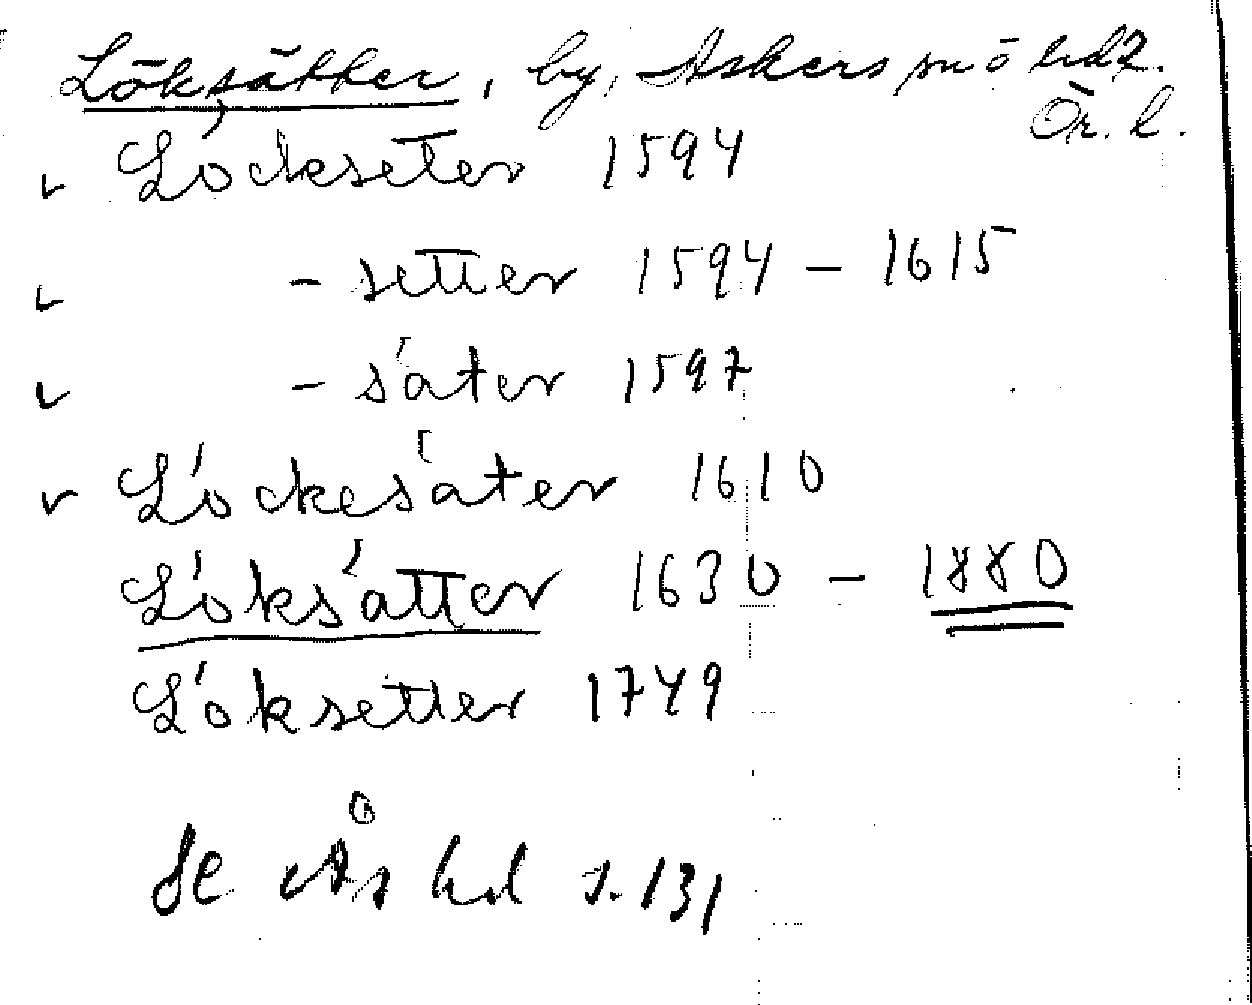 Löksätter, by, Askers sn o hd
Ör. l.
Löckseter 1594
- setter 1594 - 1615
- säter 1597
Löckesäter 1610
Löksätter 1630 - 1880
Löksetter 1749
Se Ås hd s. 131